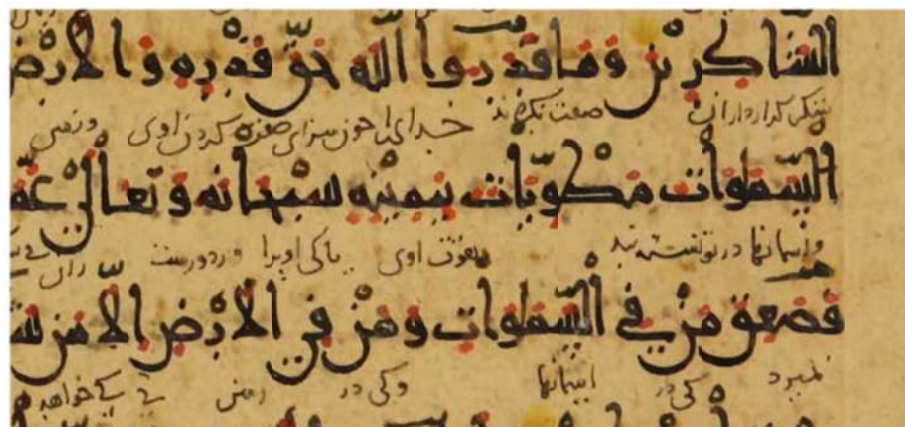 الشَّاكِرِيْنَ وَمَا قَدَرُوا اللّٰهَ حَقَّ قَدْرِهِ وَالْاَرْض
صفت نکردند خدای را چون سزای صفت کردن اوی و زمین
السَّموات مَطْوِيّات بِيَمِيْنِهِ سُبْحَانَهُ وَتَعَالٰى
و آسمانها در نوشته شد بقوت اوی پاکی اویرا و دورست
فَصَعِقَ مَنْ فِي السَّموات وَمَنْ فِي الْاَرْضِ اِلَّا مَنْ
بمیرد کی در آسمانها و کی در زمین خواهد